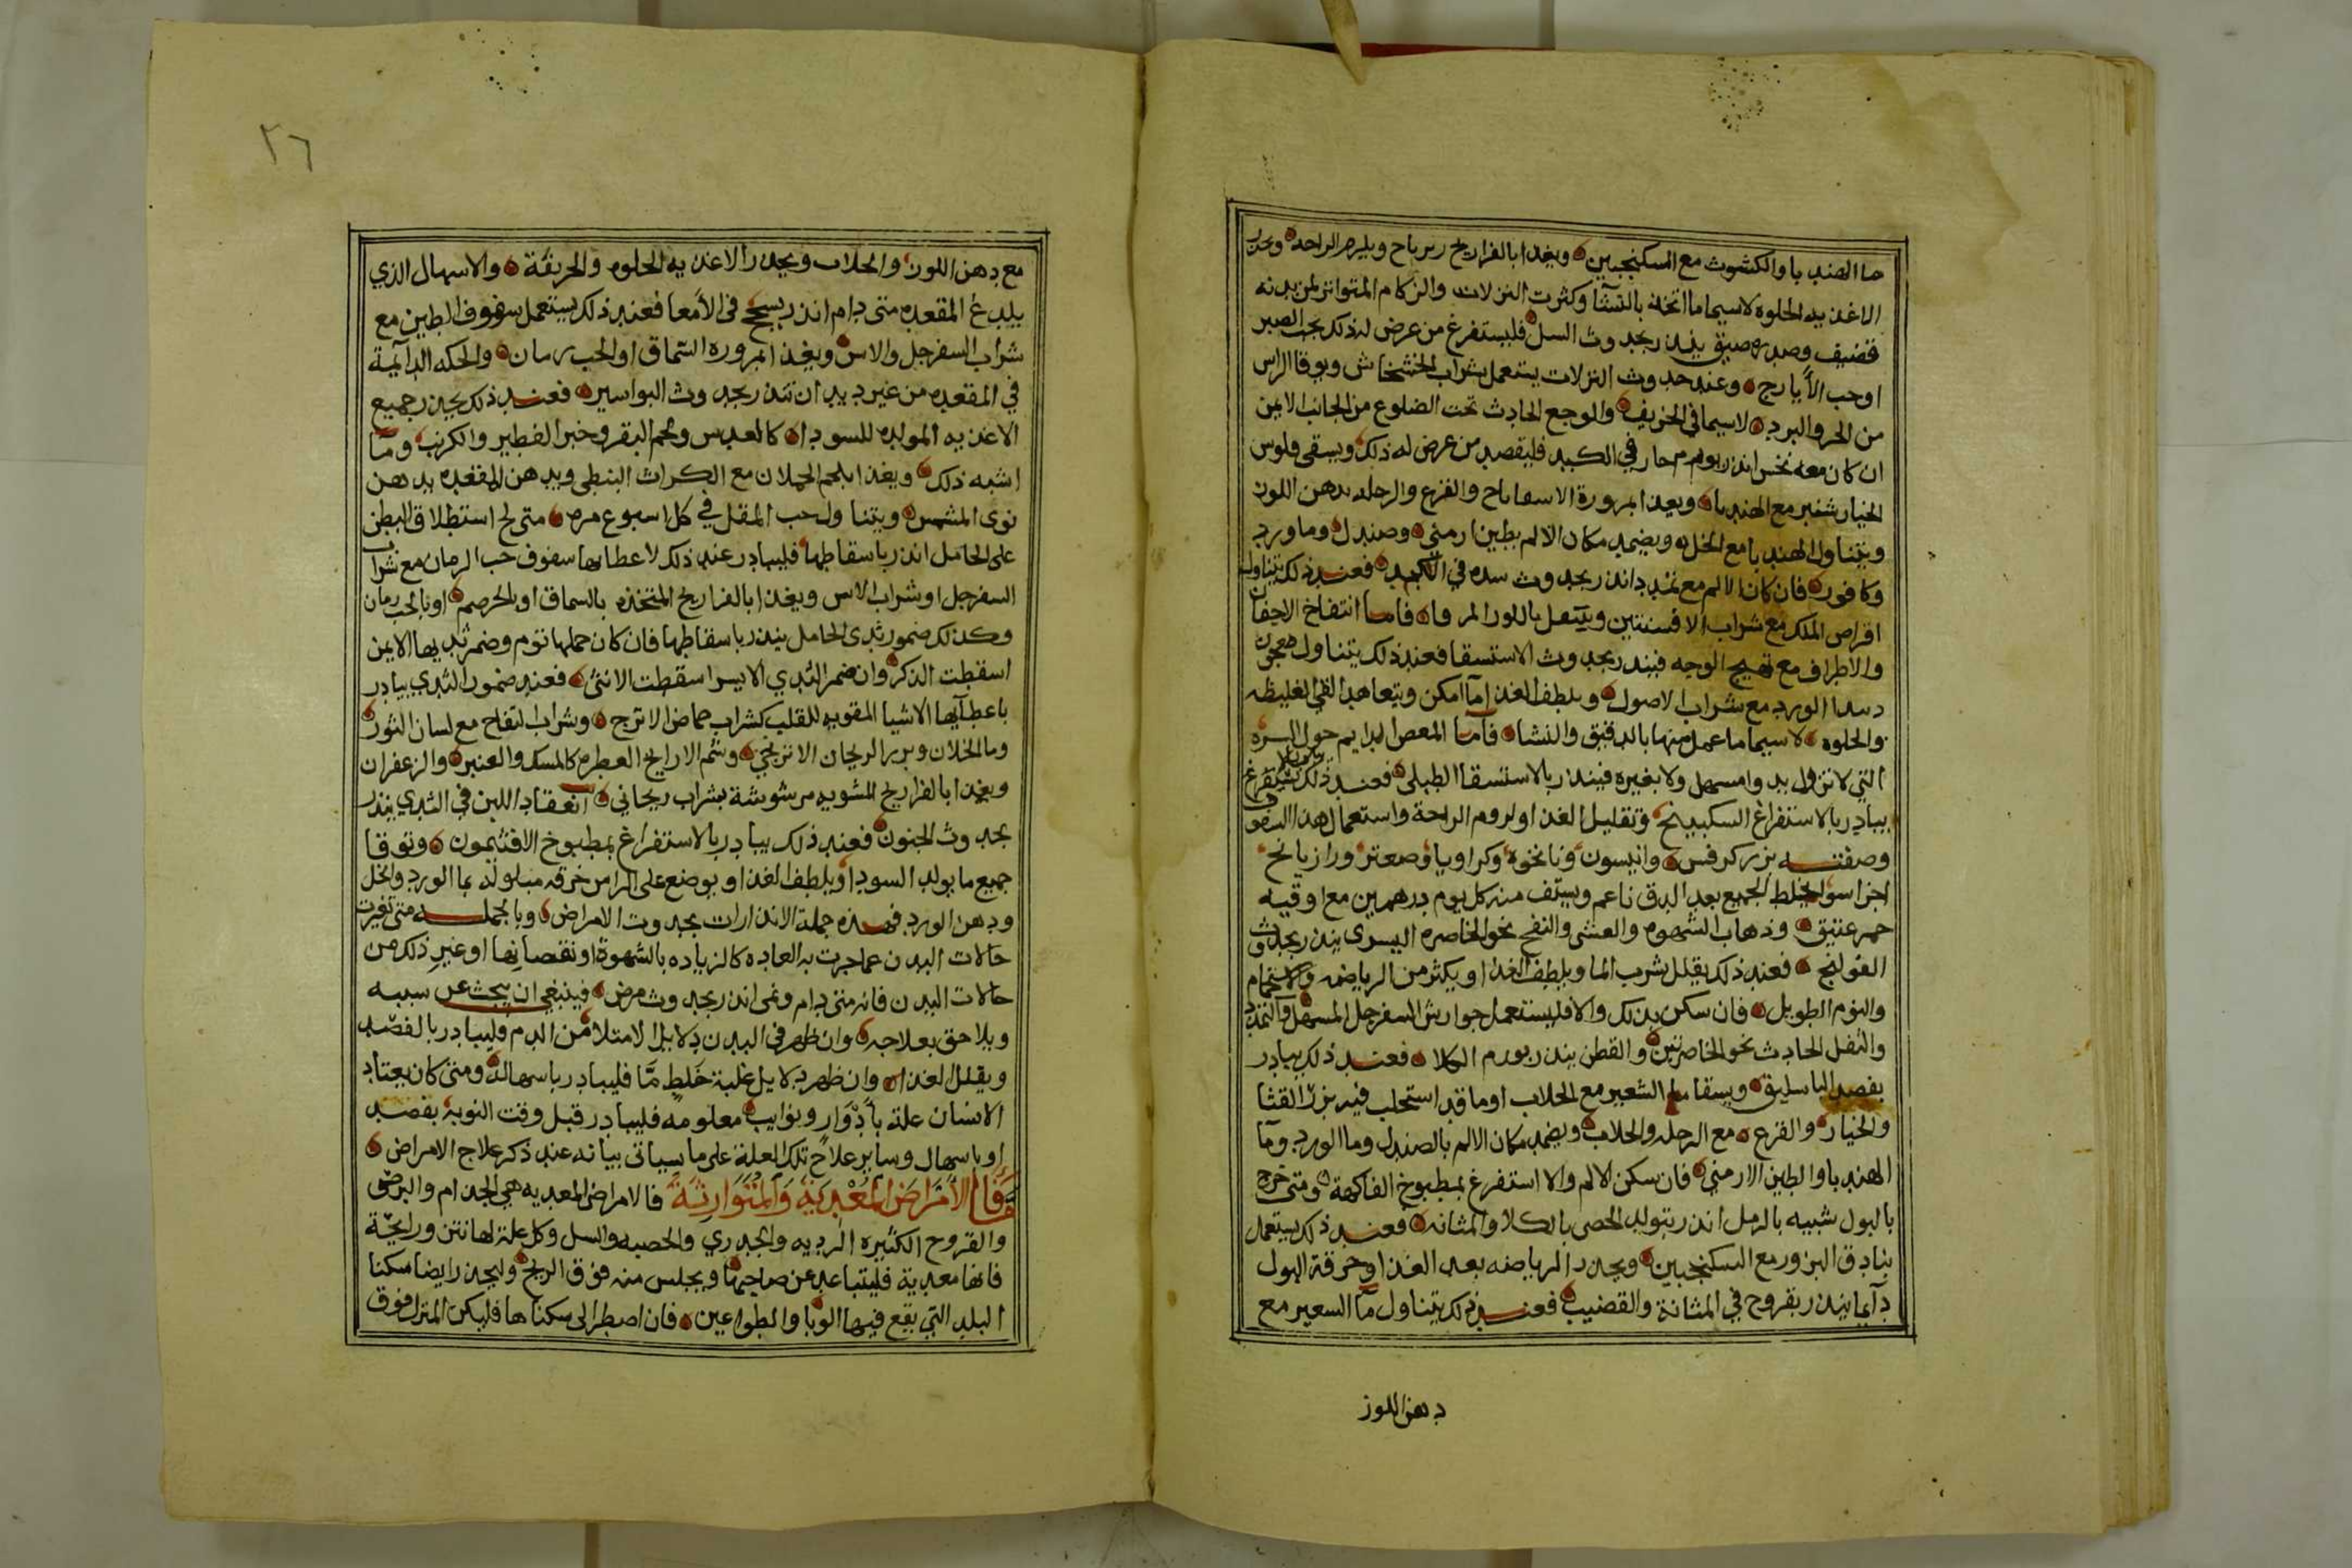 ما الهندبا والكشوث مع السكنجبين ويغدا بالفراريج زيرباج ويلزم الراحه ويحذر
الاغذيه الحلوه لاسيما ما اتخذ بالنشا وكثرت النزلات والزكام المتواتر لمن بدنه
قضيف وصدره ضيق ينذر بحدوث السل فليستفرغ من عرض له ذلك بحب الصبر
اوحب الأيارج وعند حدوث النزلات يستعمل شراب الخشخاش ويوقا الراس
من الحر والبرد لاسيما في الخريف والوجع الحادث تحت الضلوع من الجانب الايمن
ان كان معه نخس انذر بورم حار في الكبد فليفصد من عرض له ذلك ويسقى فلوس
الخيار شنبر مع الهندبا ويغدا بمزورة الاسفاناخ والقرع والرجله بدهن اللوز
ويتناول الهندبا مع الخل ويضمد مكان الالم بطين ارمني وصندل وماورد
وكافور فان كان الالم مع تمدد انذر بحدوث سده في الكبد فعند ذلك يتناول
اقراص الملك مع شراب الافسنتين ويتنقل باللوز المر فاما انتفاخ الاجفان
والاطراف مع تهيج الوجه فينذر بحدوث الاستسقا فعند ذلك يتناول معجون
دبيد الورد مع شراب الاصول ويلطف الغذا ما امكن ويتعاهد القي الغليظه
والحلوه لاسيما ما عمل منها بالدقيق والنشا فاما المغص الدايم حول السره
التي لا تزول بدوا مسهل ولا بغيره فينذر بالاستسقا الطبلي فعند ذلك
يبادر بالاستفراغ السكبينج وتقليل الغذا ولزوم الراحة واستعمال هذا السفوف
وصفته بزر كرفس وانيسون ونانخوه وكراويا وصعتر ورازيانج
اجزا سوا يخلط الجميع بعد الدق ناعم ويستف منه كل يوم درهمين مع اوقيه
خمر عتيق وذهاب الشهوه والغشي والنفخ نحو الخاصره اليسرى ينذر بحدوث
القولنج فعند ذلك يقلل شرب الما ويلطف الغذا ويكثر من الرياضه والاستحمام
والنوم الطويل فان سكن بذلك والا فليستعمل جوارش السفرجل المسهل والتمدد
والثقل الحادث نحو الخاصرتين والقطن ينذر بورم الكلا فعند ذلك يبادر
بفصد الباسليق ويسقا ما الشعير مع الجلاب او ما قد استحلب فيه بزر القثا
والخيار والقرع مع الرجله والجلاب ويضمد مكان الالم بالصندل وما الورد وما
الهندبا والطين الارمني فان سكن الالم والا استفرغ بمطبوخ الفاكهة ومتى خرج
بالبول شبيه بالرمل انذر بتولد الحصى بالكلا والمثانه فعند ذلك يستعمل
بنادق البزور مع السكنجبين ويحذر الرياضه بعد الغذا وحرقة البول
دآيما ينذر بقروح في المثانة والقضيب فعند ذلك يتناول ما الشعير مع
دهن اللوز
٢٦
مع دهن اللوز والجلاب ويحذر الاغذيه الحلوه والحريفة والاسهال الذي
يلدغ المقعده متى دام انذر بسحج فى الأمعا فعند ذلك يستعمل سفوف الطين مع
شراب السفرجل والاس ويغدا بمزوره السماق او الحب رمان والحكه الدآيمة
في المقعده من غير ديدان تنذر بحدوث البواسير فعند ذلك يحذر جميع
الاغذيه المولده للسودا كالعدس ولحم البقر وخبز الفطير والكرنب وما
اشبه ذلك ويغذا بلحم الحملان مع الكراث النبطي ويدهن المقعده بدهن
نوى المشمش ويتناول حب المقل في كل اسبوع مره متى لح استطلاق البطن
على الحامل انذر باسقاطها فليبادر عند ذلك لاعطايها سفوف حب الرمان مع شراب
السفرجل او شراب الاس ويغذا بالفراريج المتخذه بالسماق او بالحرصم او بالحب رمان
وكذلك ضمور ثدى الحامل ينذر باسقاطها فان كان حملها توم وضمر ثديها الايمن
اسقطت الذكر وان ضمر الثدي الايسر اسقطت الانثى فعند ضمور الثدي يبادر
باعطآيها الاشيا المقويه للقلب كشراب حماض الاترج وشراب التفاح مع لسان الثور
وما الخلاف وبزر الريحان الاترنجي وشم الارايح العطره كالمسك والعنبر والزعفران
ويغذا بالفراريج المشويه مرشوشة بشراب ريحاني انعقاد اللبن في الثدي ينذر
بحدوث الجنون فعند ذلك يبادر بالاستفراغ بمطبوخ الافتيمون وتوقا
جميع ما يولد السودا ويلطف الغذا ويوضع على الراس خرقه مبلوله بما الورد والخل
ودهن الورد فهذه جملة الانذارات بحدوث الامراض وبالجمله متى تغيرت
حالات البدن عما جرت به العاده كالزياده بالشهوة او نقصانها او غير ذلك من
حالات البدن فانه متى دام ونمى انذر بحدوث مرض فينبغى ان يبحث عن سببه
ويلاحق بعلاجه وان ظهر في البدن دلايل الامتلا من الدم وليبادر بالفصد
ويقلل الغذا وان ظهر دلايل غلبة خلط ما فليبادر باسهاله ومتى كان يعتاد
الانسان علة بأدوار ونوايب معلومه فليبادر قبل وقت النوبة بفصد
او باسهال وساير علاج تلك العلة على ما سياتى بيانه عند ذكر علاج الامراض
وقال الأمراض المعدية والمتوارثة فالامراض المعديه هي الجذام والبرص
والقروح الكثيره الرديه والجدري والحصبه والسل وكل علة لها نتن ورايحة
فانها معدية فليتباعد عن صاحبها ويجلس منه فوق الريح وليحذر ايضا سكنا
البلد التي يقع فيها الوبا والطواعين فان اضطر الى سكناها فليكن المنزل فوق